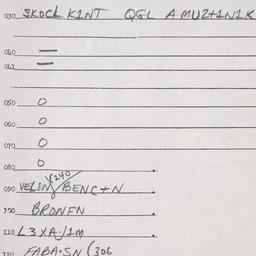 030 SKOCL K1NT QGL AMUZ+1N1K
040 —
042 =
050 O
060 O
070 O
080 O
(240
090 VELSN/BENC+N
100 BRONEN
110 L3XA/1M
120 FABA·SN (306